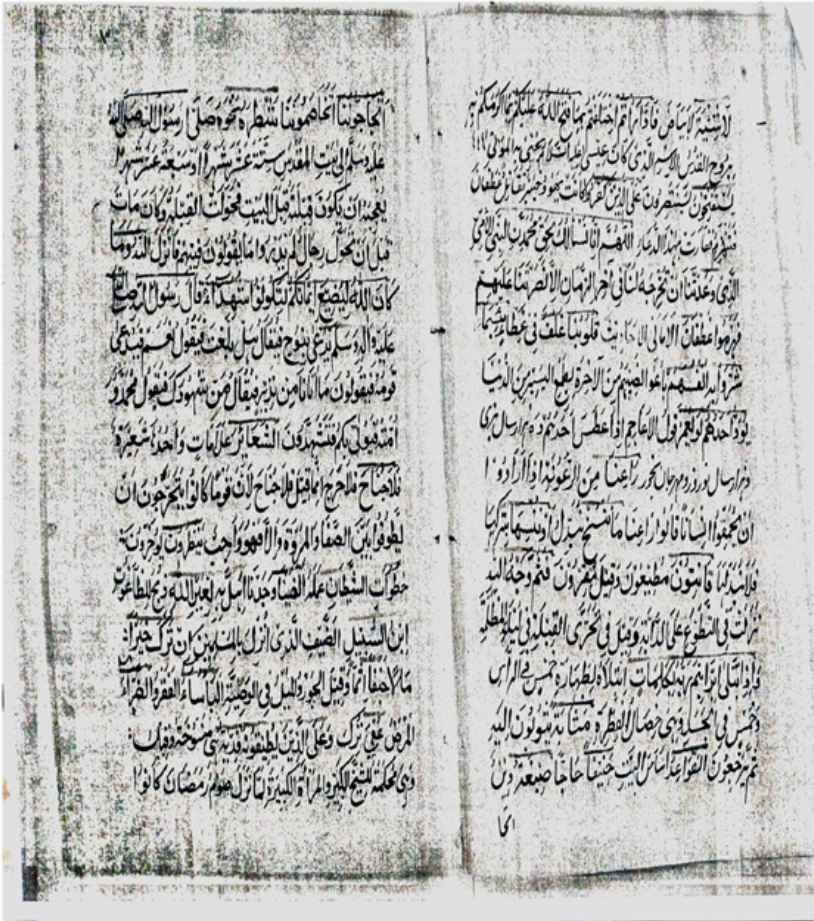 لا شية لا بياض فادارأتم اختلفتم بما فتح الله عليكم بما اكرمكم به
بروح القدس الاسم الذي كان عيسى عليه السلام يحيي به الموتى
يستفتحون يستنصرون على الذين كفروا كانت يهود خيبر تقاتل غطفان
بهذا الدعاء اللهم انا نسألك بحق محمد النبي الامي
الذي وعدتنا ان تخرجه لنا في آخر الزمان الا نصرتنا عليهم
فهزموا غطفان الاماني الاحاديث قلوبنا غلف في غطاء بئسما
شروا به انفسهم باعوا نصيبهم من الآخرة بطمع يسير من الدنيا
يود احدهم لو يعمر قول الاعاجم اذا عطس احدهم ده هزار سال بزى
وهزار سال نوروز ومهرجان بخور راعنا من الرعونة اذا ارادوا
ان يحمقوا انسانا قالوا راعنا ما ننسخ نبدل او ننسها نتركها
فلا نبدلها قانتون مطيعون وقيل مقرون فثم وجه الله
نزلت في التطوع على الدابة وقيل في تحري القبلة في ليلة المظلمة
واذ ابتلى ابراهيم ربه بكلمات ابتلاه بطهارة خمس في الراس
وخمس في الجسد وهي خصال الفطرة مثابة يثوبون اليه
ثم يرجعون القواعد اساس البيت حنيفا حاجا صبغة دين
الحا
اتحاجوننا اتخاصموننا شطره نحوه صلى رسول الله صلى الله
عليه وسلم الى بيت المقدس ستة عشر شهرا او سبعة عشر شهرا
يعجبه ان يكون قبلته قبل البيت فحولت القبلة وكان مات
قبل ان تحول رجال لم ندر ما يقولون فيهم فانزل الله وما
كان الله ليضيع ايمانكم لتكونوا شهداء قال رسول الله صلى الله
عليه واله وسلم يدعى نوح فيقال هل بلغت فيقول نعم فيدعى
قومه فيقولون ما اتانا من نذير فيقال من شهودك فيقول محمد و
امته فيؤتى بكم فتشهدون الشعائر علامات واحدها شعيرة
فلا جناح فلا حرج انما قيل فلا جناح لان قوما كانوا يتحرجون ان
يطوفوا بين الصفا والمروة والا فهو واجب ينظرون يؤخرون
خطوات الشيطان عمله الصفا وحدة اهل به لغير الله ذبح للطاغوت
ابن السبيل الضيف الذي انزل بالمسلمين ان ترك خيرا
مالا جنفا اثما وقيل الجور والميل في الوصية البأساء الفقر والضراء
المرض عفي ترك وعلى الذين يطيقونه فدية منسوخة وقيل
هي محكمة للشيخ الكبير والمرأة الكبيرة لما نزل صوم رمضان كانوا